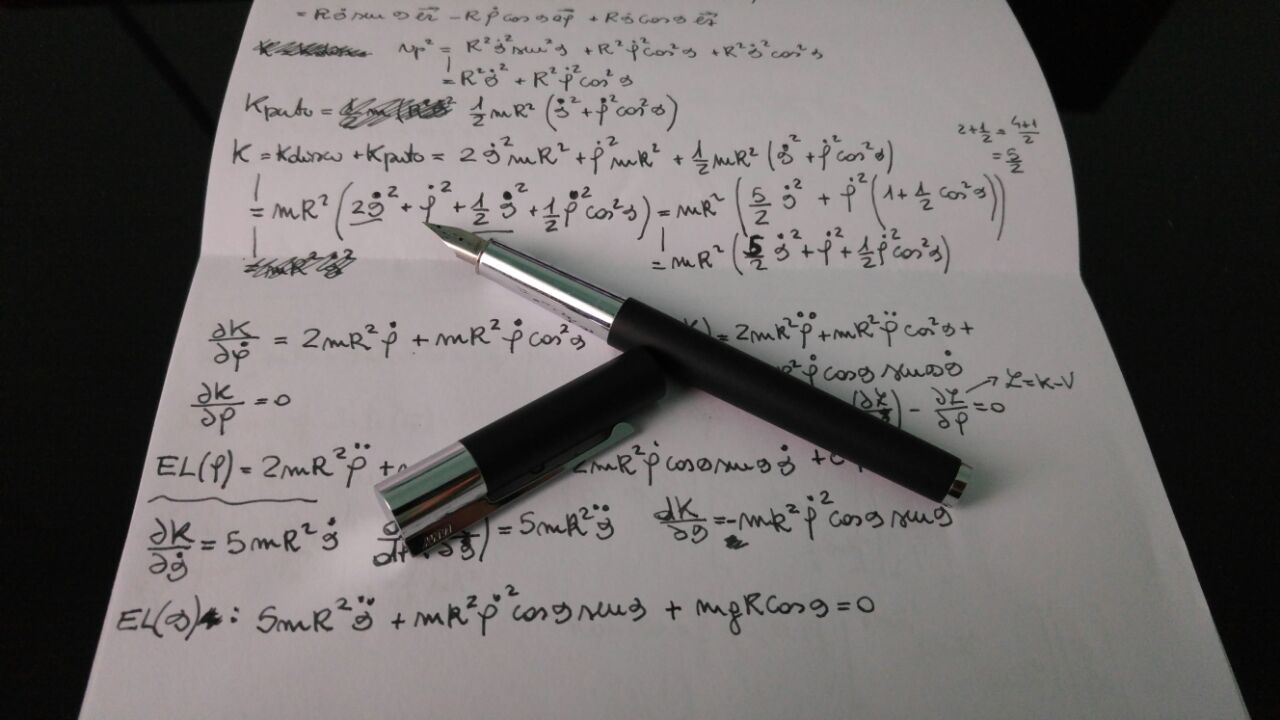 = Rϑ̇ senϑ e⃗r − Rφ̇ cosϑ e⃗φ + Rϑ̇ cosϑ e⃗z
vp² = R²ϑ̇²sen²ϑ + R²φ̇²cos²ϑ + R²ϑ̇²cos²ϑ
= R²ϑ̇² + R²φ̇²cos²ϑ
Kpunto = 1/2 mR² (ϑ̇² + φ̇²cos²ϑ)
2+1/2 = 4+1/2
= 5/2
K = Kdisco + Kpunto = 2ϑ̇²mR² + φ̇²mR² + 1/2 mR² (ϑ̇² + φ̇²cos²ϑ)
= mR² (2ϑ̇² + φ̇² + 1/2 ϑ̇² + 1/2 φ̇²cos²ϑ) = mR² (5/2 ϑ̇² + φ̇² (1 + 1/2 cos²ϑ))
= mR² (5/2 ϑ̇² + φ̇² + 1/2 φ̇²cos²ϑ)
∂K/∂φ̇ = 2mR²φ̇ + mR²φ̇cos²ϑ ) = 2mR²φ̈ + mR²φ̈ cos²ϑ +
R²φ̇ cosϑ senϑ ϑ̇
∂K/∂φ = 0 ) − ∂ℒ/∂φ = 0 → ℒ = K−V
EL(φ) = 2mR²φ̈ + 2mR²φ̇ cosϑ senϑ ϑ̇ +
∂K/∂ϑ̇ = 5mR²ϑ̇ ) = 5mR²ϑ̈ ∂K/∂ϑ = −mR²φ̇² cosϑ senϑ
EL(ϑ): 5mR²ϑ̈ + mR²φ̇² cosϑ senϑ + mgRcosϑ = 0